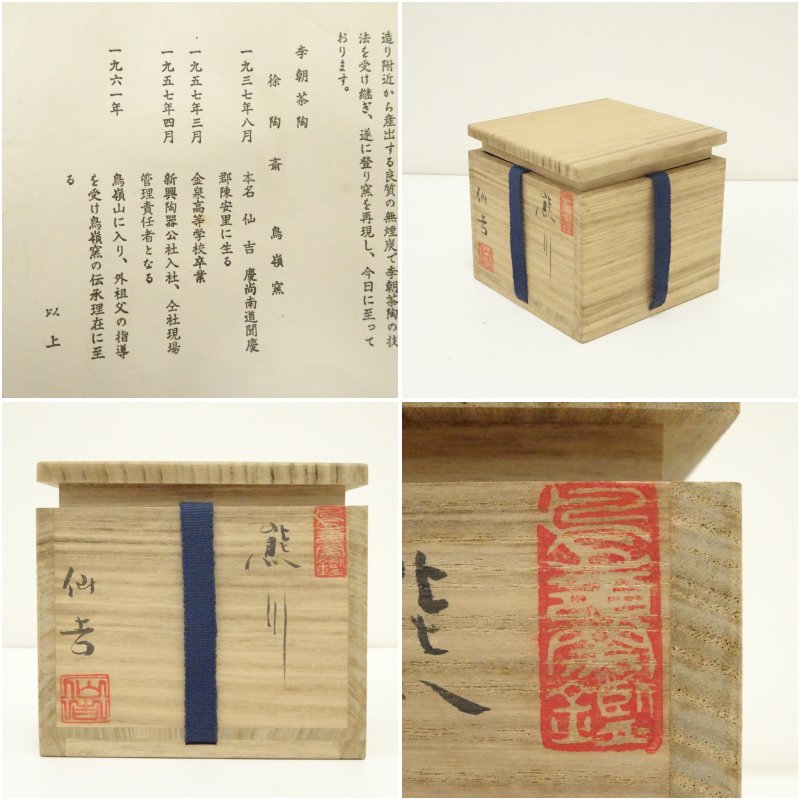 造り附近から産出する良質の無煙炭で李朝茶陶の技
法を受け継ぎ、遂に登り窯を再現し、今日に至って
おります。
李朝茶陶
徐陶斎 鳥嶺窯
一九三七年八月 本名 仙吉 慶尚南道聞慶
郡陳安里に生る
一九五七年三月 金泉高等学校卒業
一九五七年四月 新興陶器公社入社、仝社現場
管理責任者となる
一九六一年 鳥嶺山に入り、外祖父の指導
を受け鳥嶺窯の伝承理在に至
る
以上
熊川
仙吉
熊川
仙吉